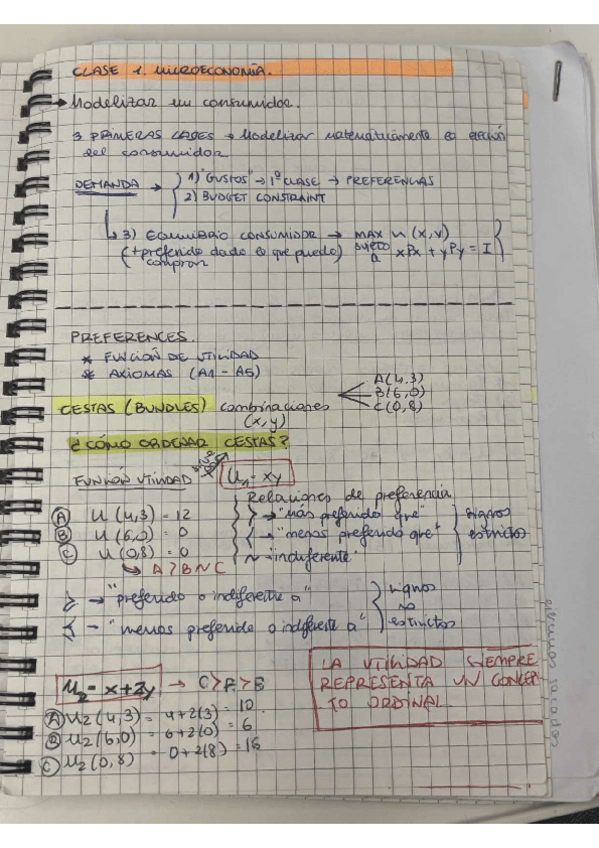 CLASE 1. MICROECONOMÍA.
→ Modelizar un consumidor.
3 PRIMERAS CLASES → Modelizar matemáticamente la elección
del consumidor
DEMANDA → 1) "GUSTOS" → 1ª CLASE → PREFERENCIAS
2) BUDGET CONSTRAINT
↳ 3) EQUILIBRIO CONSUMIDOR → MAX u (x,y)
(+ preferido dado lo que puedo) sujeto a xPx + yPy = I
comprar
PREFERENCES.
* FUNCIÓN DE UTILIDAD
* AXIOMAS (A1 - A5)
CESTAS (BUNDLES) combinaciones
(x,y)
A(4,3)
B(6,0)
C(0,8)
¿CÓMO ORDENAR CESTAS?
FUNCIÓN UTILIDAD U1 = xy
Relaciones de preferencia
A U (4,3) = 12 > → "más preferido que"
B U (6,0) = 0 < → "menos preferido que"
C U (0,8) = 0 ~ → indiferente
signos
estrictos
↳ A > B ~ C
≽ → "preferido o indiferente a"
≼ → "menos preferido o indiferente a"
signos
no
estrictos
LA UTILIDAD SIEMPRE
REPRESENTA UN CONCEP-
TO ORDINAL
U2 = x + 2y → C > A > B
A U2 (4,3) = 4+2(3) = 10
B U2 (6,0) = 6+2(0) = 6
C U2 (0,8) = 0+2(8) = 16